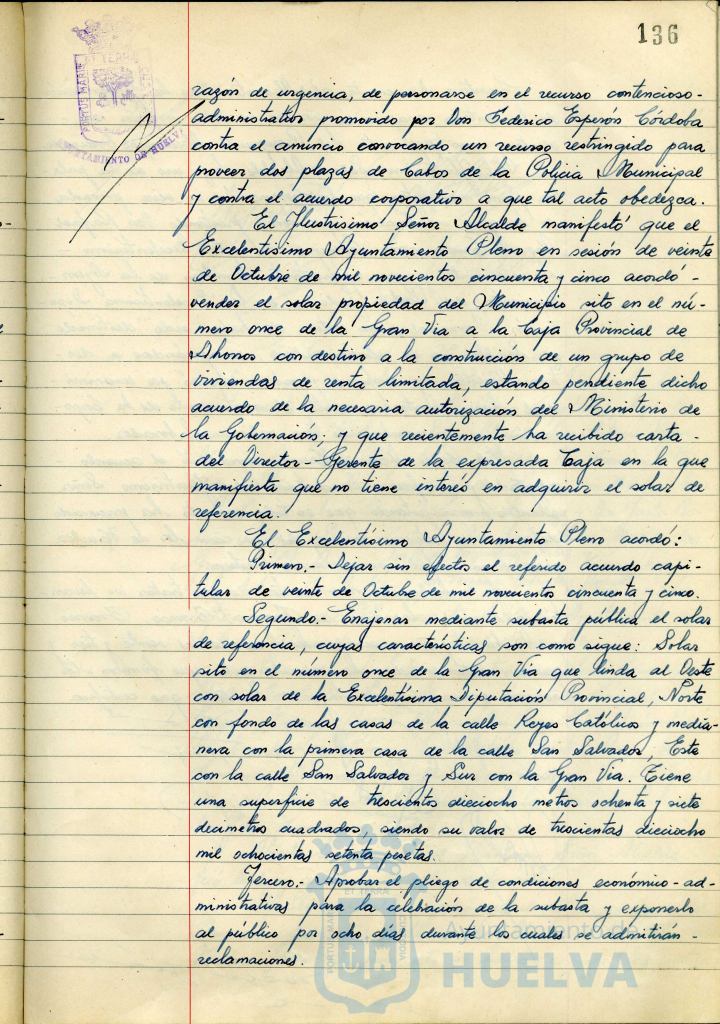 136
PORTUS MARIS
ET TERRAE
AYUNTAMIENTO DE HUELVA
razón de urgencia, de personarse en el recurso contencioso-
administrativo promovido por Don Federico Esperón Córdoba
contra el anuncio convocando un recurso restringido para
proveer dos plazas de Cabos de la Policia Municipal
y contra el acuerdo corporativo a que tal acto obedezca.
El Ilustrisimo Señor Alcalde manifestó que el
Excelentisimo Ayuntamiento Pleno en sesión de veinte
de Octubre de mil novecientos cincuenta y cinco acordó-
vender el solar propiedad del Municipio sito en el nú-
mero once de la Gran Via a la Caja Provincial de
Ahorros con destino a la construcción de un grupo de
viviendas de renta limitada, estando pendiente dicho
acuerdo de la necesaria autorización del Ministerio de
la Gobernación; y que recientemente ha recibido carta-
del Director-Gerente de la expresada Caja en la que
manifiesta que no tiene interés en adquirir el solar de
referencia.
El Excelentísimo Ayuntamiento Pleno acordó:
Primero.- Dejar sin efectos el referido acuerdo capi-
tular de veinte de Octubre de mil novecientos cincuenta y cinco.
Segundo.- Enajenar mediante subasta pública el solar
de referencia, cuyas características son como sigue: Solar
sito en el número once de la Gran Via que linda al Oeste
con solar de la Excelentísima Diputación Provincial, Norte
con fondo de las casas de la calle Reyes Católicos y media-
nera con la primera casa de la calle San Salvador, Este
con la calle San Salvador y Sur con la Gran Via. Tiene
una superficie de trescientos dieciocho metros ochenta y siete
decimetros cuadrados, siendo su valor de trescientas dieciocho
mil ochocientas setenta pesetas.
Tercero.- Aprobar el pliego de condiciones económico-ad-
ministrativas para la celebración de la subasta y exponerlo
al público por ocho días durante los cuales se admitirán-
reclamaciones.
Ayuntamiento de
HUELVA